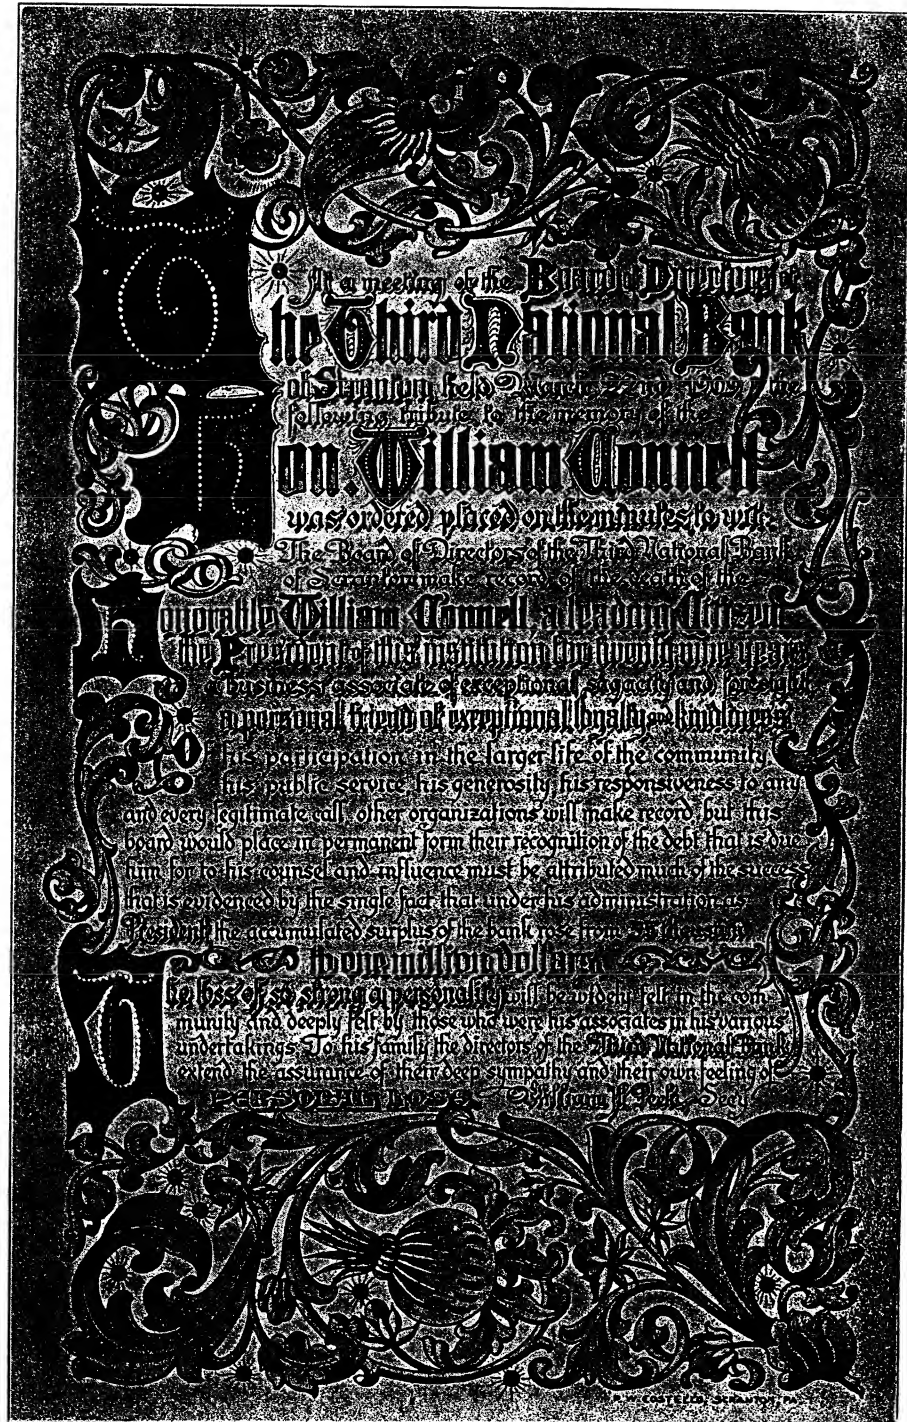 At a meeting of the Board of Directors of
The Third National Bank
of Scranton, held March 22nd 1909, the
following tribute to the memory of the
Hon. William Connell
was ordered placed on the minutes, to wit:
The Board of Directors of the Third National Bank
of Scranton make record of the death of the
Honorable William Connell, a leading Citizen
the President of this institution for twenty-one years
a business associate of exceptional sagacity and foresight
a personal friend of exceptional loyalty and kindliness.
Of his participation in the larger life of the community
his public service, his generosity, his responsiveness to any
and every legitimate call, other organizations will make record, but this
board would place in permanent form their recognition of the debt that is due
him for to his counsel and influence must be attributed much of the success
that is evidenced by the single fact that under his administration as
President the accumulated surplus of the bank rose from thousand
to one million dollars.
The loss of so strong a personality will be widely felt in the com-
munity and deeply felt by those who were his associates in his various
undertakings. To his family the directors of the Third National Bank
extend the assurance of their deep sympathy and their own feeling of
PERSONAL LOSS. William H. Peck, Secy.
COSTELLO, SCRANTON, PA